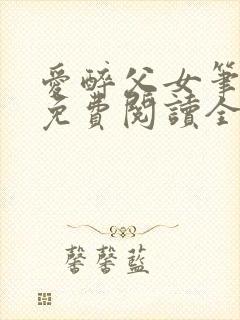 愛醉父女筆
免費閱讀全
馨馨藍